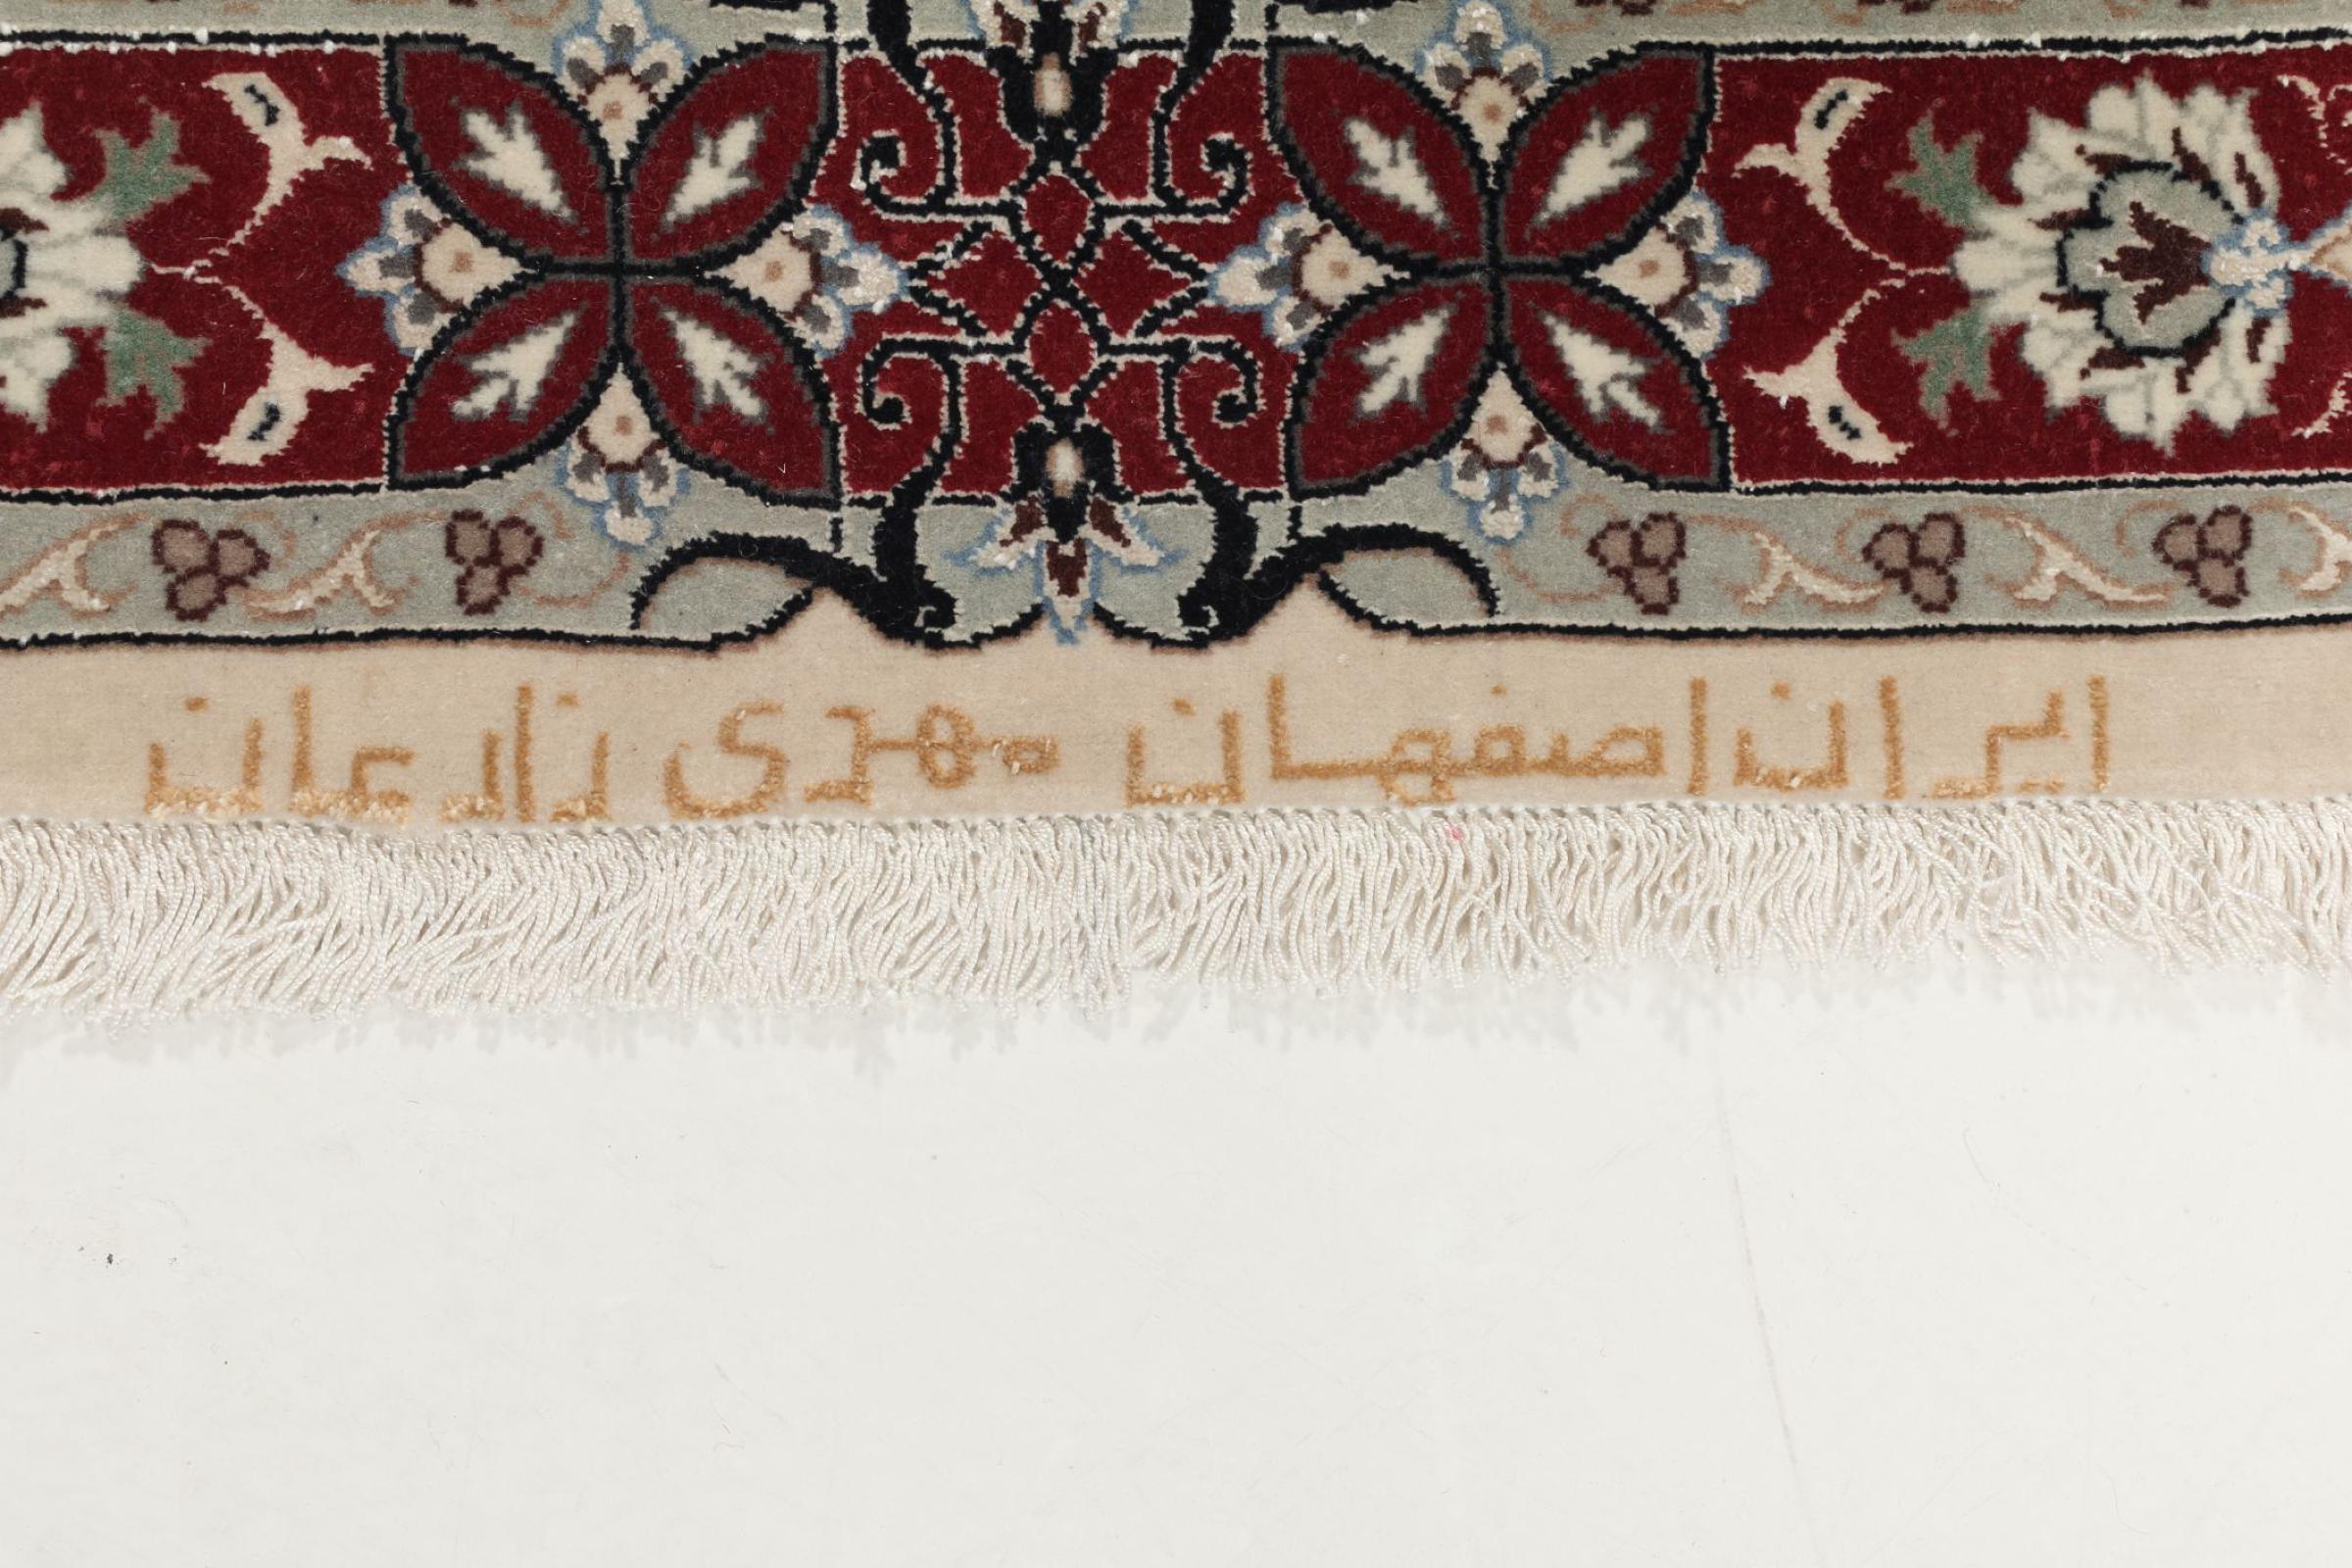 ایران اصفهان مهدی زارعان